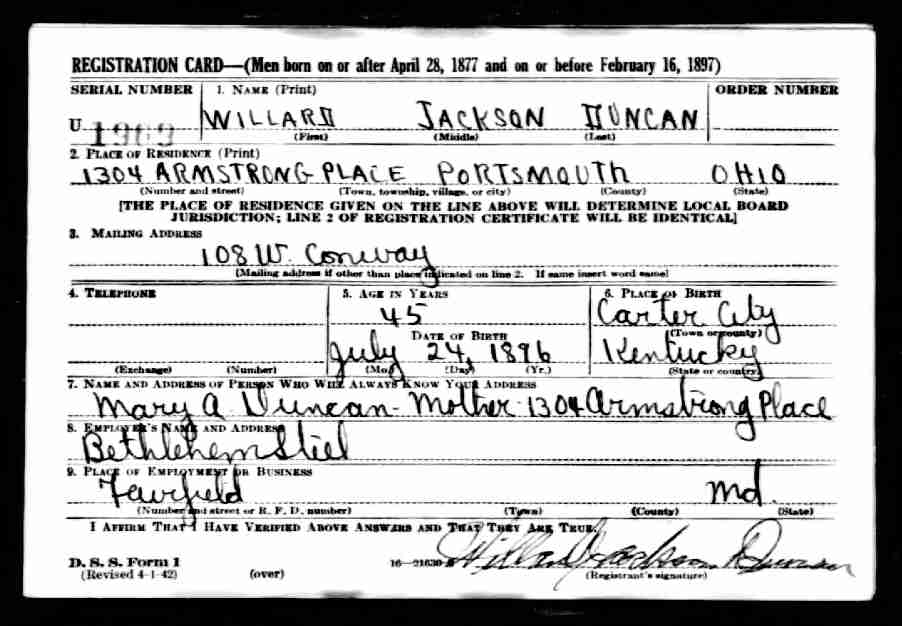 REGISTRATION CARD—(Men born on or after April 28, 1877 and on or before February 16, 1897)
SERIAL NUMBER 1. NAME (Print) ORDER NUMBER
U 1909 WILLARD JACKSON DUNCAN
(First) (Middle) (Last)
2. PLACE OF RESIDENCE (Print)
1304 ARMSTRONG PLACE PORTSMOUTH OHIO
(Number and street) (Town, township, village, or city) (County) (State)
[THE PLACE OF RESIDENCE GIVEN ON THE LINE ABOVE WILL DETERMINE LOCAL BOARD
JURISDICTION; LINE 2 OF REGISTRATION CERTIFICATE WILL BE IDENTICAL]
3. MAILING ADDRESS
108 W. Conway
(Mailing address if other than place indicated on line 2. If same insert word same)
4. TELEPHONE 5. AGE IN YEARS 6. PLACE OF BIRTH
45 Carter City
DATE OF BIRTH (Town or county)
July 24, 1896 Kentucky
(Exchange) (Number) (Mo.) (Day) (Yr.) (State or country)
7. NAME AND ADDRESS OF PERSON WHO WILL ALWAYS KNOW YOUR ADDRESS
Mary A. Duncan - Mother - 1304 Armstrong Place
8. EMPLOYER'S NAME AND ADDRESS
Bethlehem Steel
9. PLACE OF EMPLOYMENT OR BUSINESS
Fairfield Md.
(Number and street or R. F. D. number) (Town) (County) (State)
I AFFIRM THAT I HAVE VERIFIED ABOVE ANSWERS AND THAT THEY ARE TRUE.
D. S. S. Form 1 16—21630 Willard Jackson Duncan
(Revised 4-1-42) (over) (Registrant's signature)